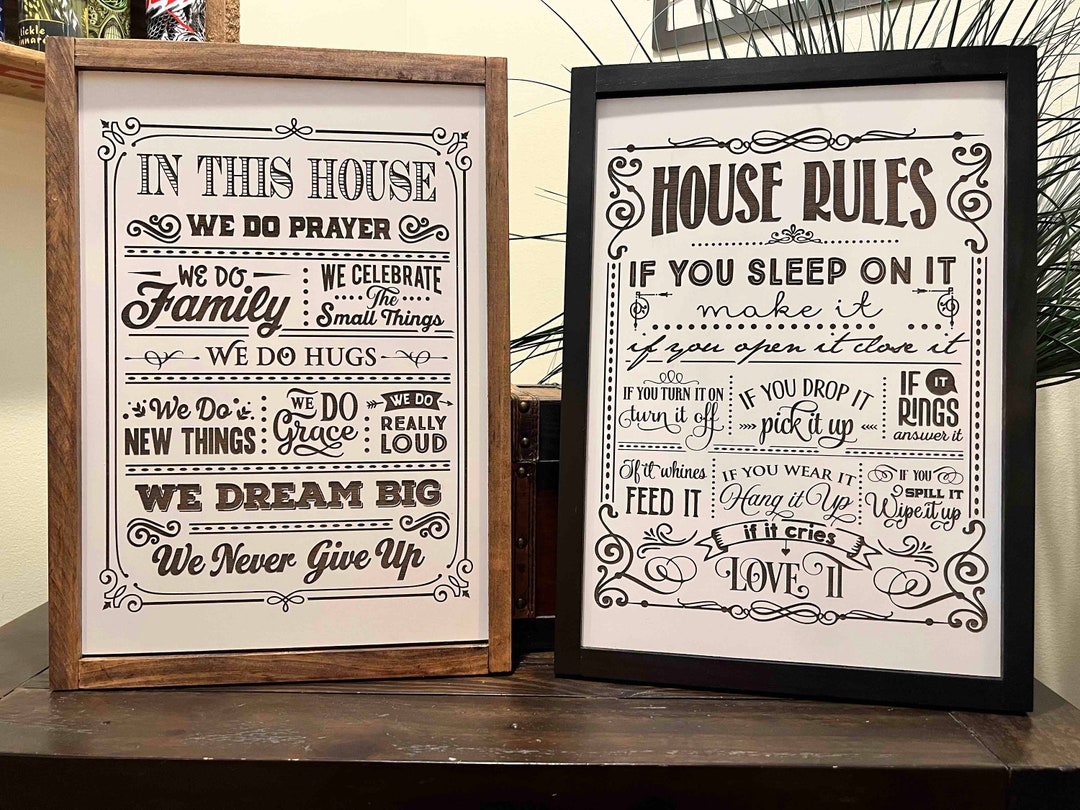 IN THIS HOUSE
WE DO PRAYER
WE DO
Family
WE CELEBRATE
The
Small Things
WE DO HUGS
We Do
NEW THINGS
WE DO
Grace
WE DO
REALLY
LOUD
WE DREAM BIG
We Never Give Up
HOUSE RULES
IF YOU SLEEP ON IT
make it
if you open it close it
IF YOU TURN IT ON
turn it off
IF YOU DROP IT
pick it up
IF IT
RINGS
answer it
If it whines
FEED IT
IF YOU WEAR IT
Hang it Up
IF YOU
SPILL IT
Wipe it up
if it cries
LOVE IT